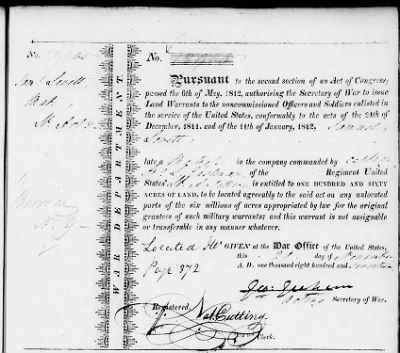 No.
No.
Saml Lovett
PURSUANT to the second section of an Act of Congress,
passed the 6th of May, 1812, authorising the Secretary of War to issue
Land Warrants to the noncommissioned Officers and Soldiers enlisted in
the service of the United States, conformably to the acts of the 24th of
December, 1811, and of the 11th of January, 1812, Samuel
Lovett
late a in the company commanded by
Regiment United
States' is entitled to ONE HUNDRED AND SIXTY
ACRES OF LAND, to be located agreeably to the said act on any unlocated
parts of the six millions of acres appropriated by law for the original
grantees of such military warrants; and this warrant is not assignable
or transferable in any manner whatever.
WAR DEPARTMENT.
Located GIVEN at the War Office of the United States,
this day of November
Page 372
A. D. one thousand eight hundred and
Secretary of War.
Registered,
Nat. Cutting
Clerk.